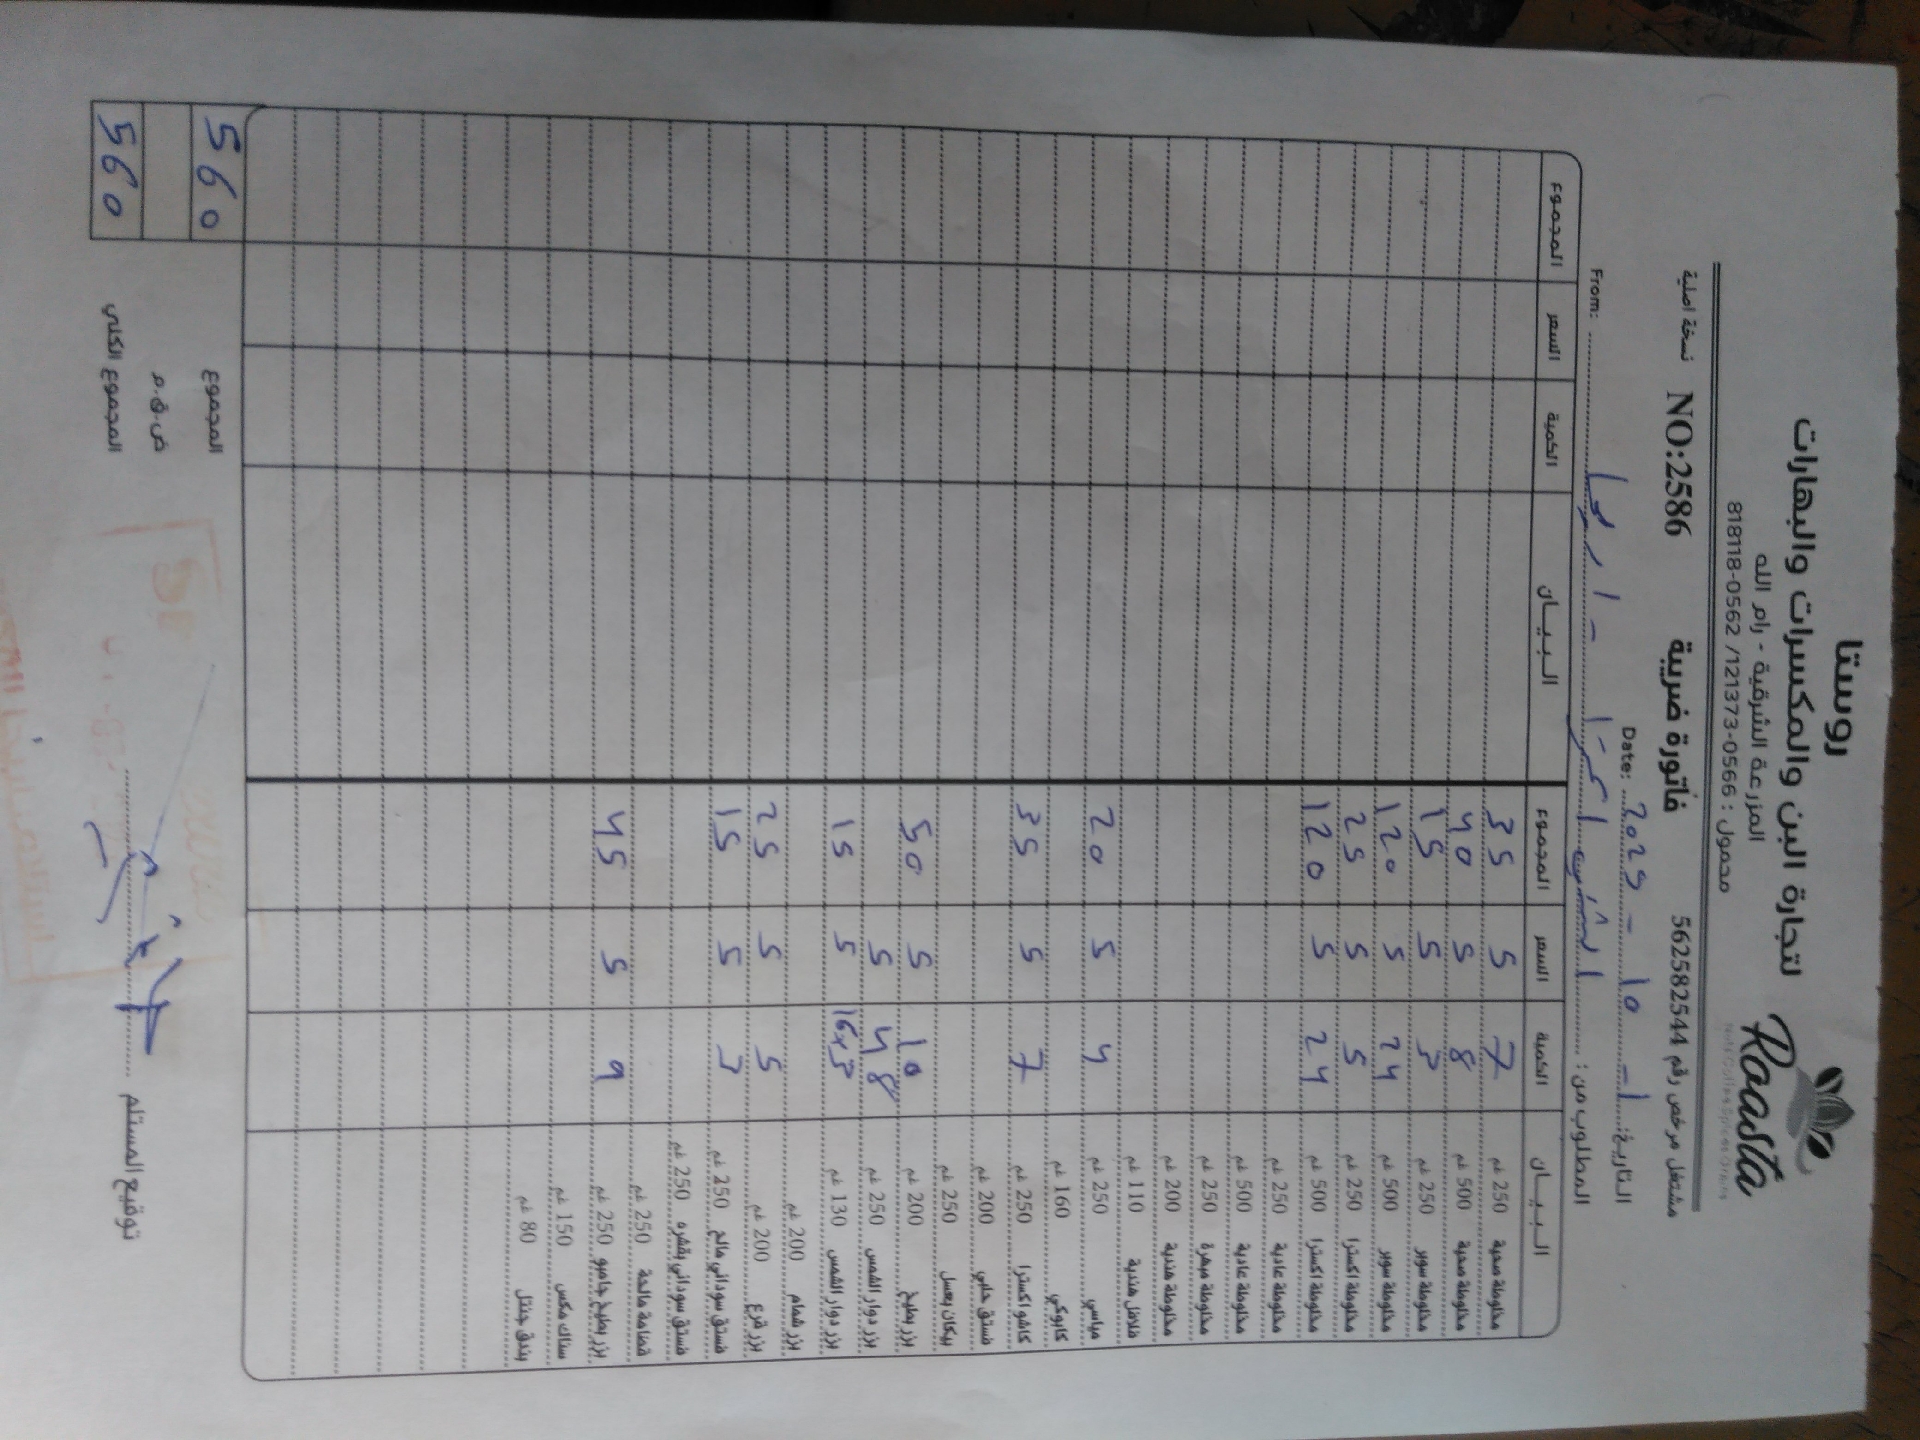 روستا
لتجارة البن والمكسرات والبهارات
المزرعة الشرقية - رام الله
محمول : 0566-121373/ 0562-818118
Roasta
مشتغل مرخص رقم 562582544 فاتورة ضريبية NO:2586 نسخة اصلية
التاريخ: 1 - 10 - 2025 Date:
المطلوب من: From:
البيـــان الكمية السعر المجموع البيـــان الكمية السعر المجموع
مخلوطة صحية 250 غم 7 5 35
مخلوطة صحية 500 غم 8 5 40
مخلوطة سوبر 250 غم 3 5 15
مخلوطة سوبر 500 غم 24 5 120
مخلوطة اكسترا 250 غم 5 5 25
مخلوطة اكسترا 500 غم 24 5 120
مخلوطة عادية 250 غم
مخلوطة عادية 500 غم
مخلوطة مبهرة 250 غم
مخلوطة هندية 200 غم
فلافل هندية 110 غم
مياسي 250 غم 4 5 20
كابوكي 160 غم
كاشو اكسترا 250 غم 7 5 35
فستق حلبي 200 غم
بيكان بعسل 250 غم
بزر بطيخ 200 غم 10 5 50
بزر دوار الشمس 250 غم 48 5
بزر دوار الشمس 130 غم 16x3 5 15
بزر شمام 200 غم
بزر قرع 200 غم 5 5 25
فستق سوداني مالح 250 غم 3 5 15
فستق سوداني بقشره 250 غم
قضامة مالحة 250 غم
بزر بطيخ جامبو 250 غم 9 5 45
ستاك مكس 150 غم
بندق جنتل 80 غم
المجموع 560
ض.ق.م
المجموع الكلي 560
توقيع المستلم